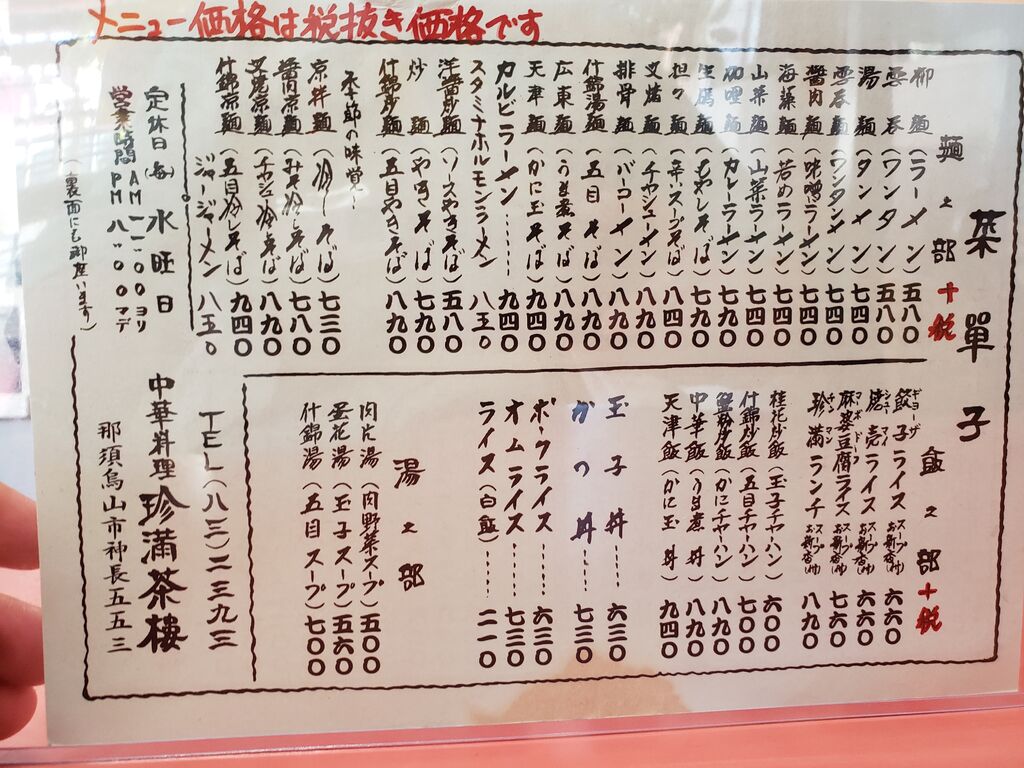 メニュー価格は税抜き価格です
菜單子
麺之部+税
柳麺(ラーメン)五八〇
雲呑(ワンタン)五八〇
湯麺(タンメン)七四〇
雲呑麺(ワンタンメン)七四〇
醤肉麺(味噌ラーメン)七四〇
海藻麺(若めラーメン)七四〇
山菜麺(山菜ラーメン)七四〇
咖喱麺(カレーラーメン)七四〇
生碼麺(もやしそば)七九〇
担々麺(辛スープそば)八四〇
叉焼麺(チャシューメン)八九〇
排骨麺(パーコーメン)八九〇
什錦湯麺(五目そば)八九〇
広東麺(うま煮そば)八九〇
天津麺(かに玉そば)九四〇
カルビラーメン……九四〇
スタミナホルモンラーメン八五〇
洋醤炒麺(ソースやきそば)五八〇
炒麺(やきそば)七九〇
什錦炒麺(五目やきそば)八九〇
季節の味覚〜
京拌麺(冷しそば)七三〇
醤肉京麺(みそ冷しそば)七八〇
叉焼京麺(チャシュ冷そば)八九〇
什錦京麺(五目冷しそば)九四〇
ジャージャーメン八五〇
定休日(毎)水旺日
営業時間AM一一:〇〇ヨリ
PM八:〇〇マデ
(裏面にも御座います)
飯之部+税
餃子ライス スープ お新香(付)六六〇
ギョーザ
焼売ライス スープ お新香(付)六六〇
シューマイ
麻婆豆腐ライス スープ お新香(付)七六〇
マーボドーフ
珍満ランチ スープ お新香(付)八九〇
チンマン
桂花炒飯(玉子チャーハン)六〇〇
什錦炒飯(五目チャーハン)七〇〇
蟹粉炒飯(かにチャーハン)八九〇
中華飯(うま煮丼)八九〇
天津飯(かに玉丼)九四〇
玉子丼……六三〇
かつ丼……七三〇
ポークライス……六三〇
オムライス……七三〇
ライス(白飯)……二一〇
湯之部
肉片湯(肉野菜スープ)五〇〇
蛋花湯(玉子スープ)五六〇
什錦湯(五目スープ)七〇〇
TEL(八三)二三九三
中華料理 珍満茶楼
那須烏山市神長五五三